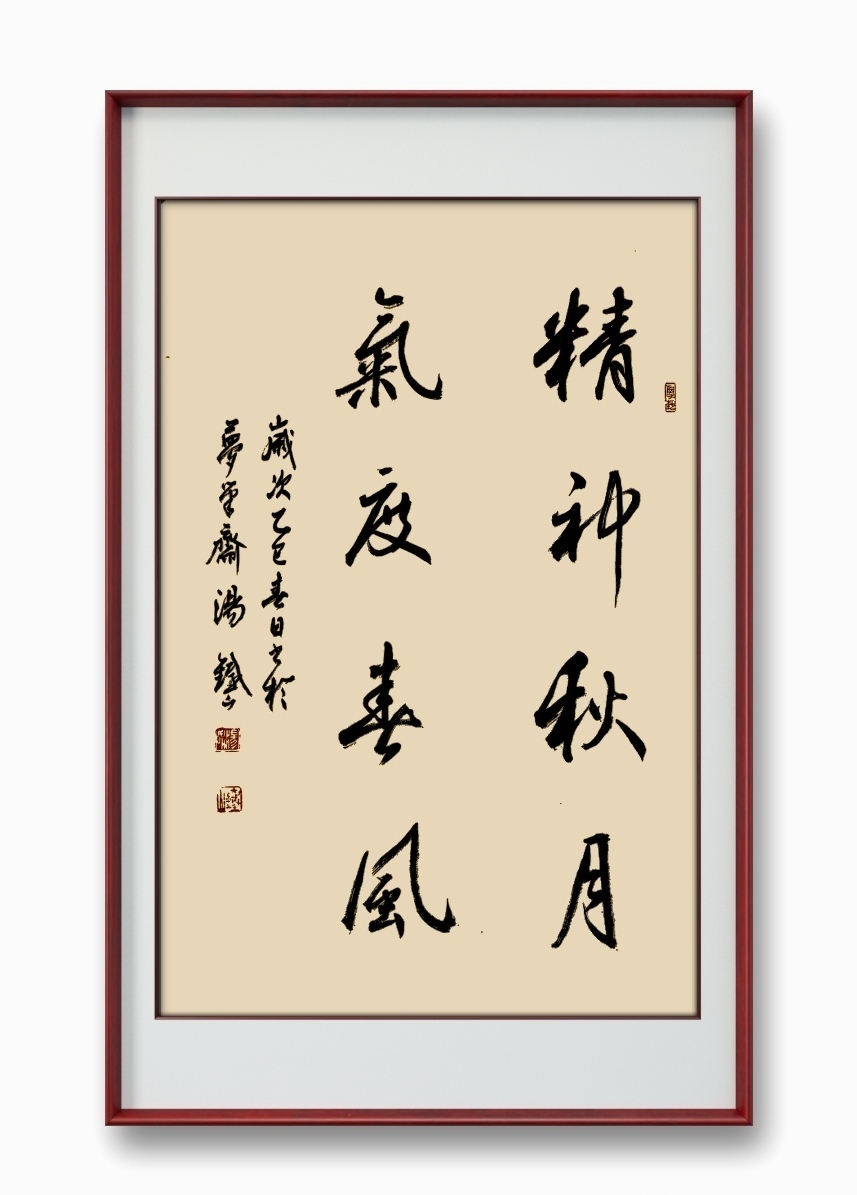 精神秋月
氣度春風
歲次乙巳春日書於
夢筆齋湯